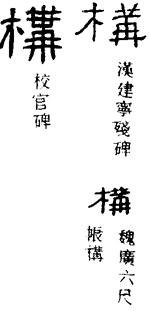 構
漢建寧殘碑
構
魏廣六尺
帳構
構
校官碑